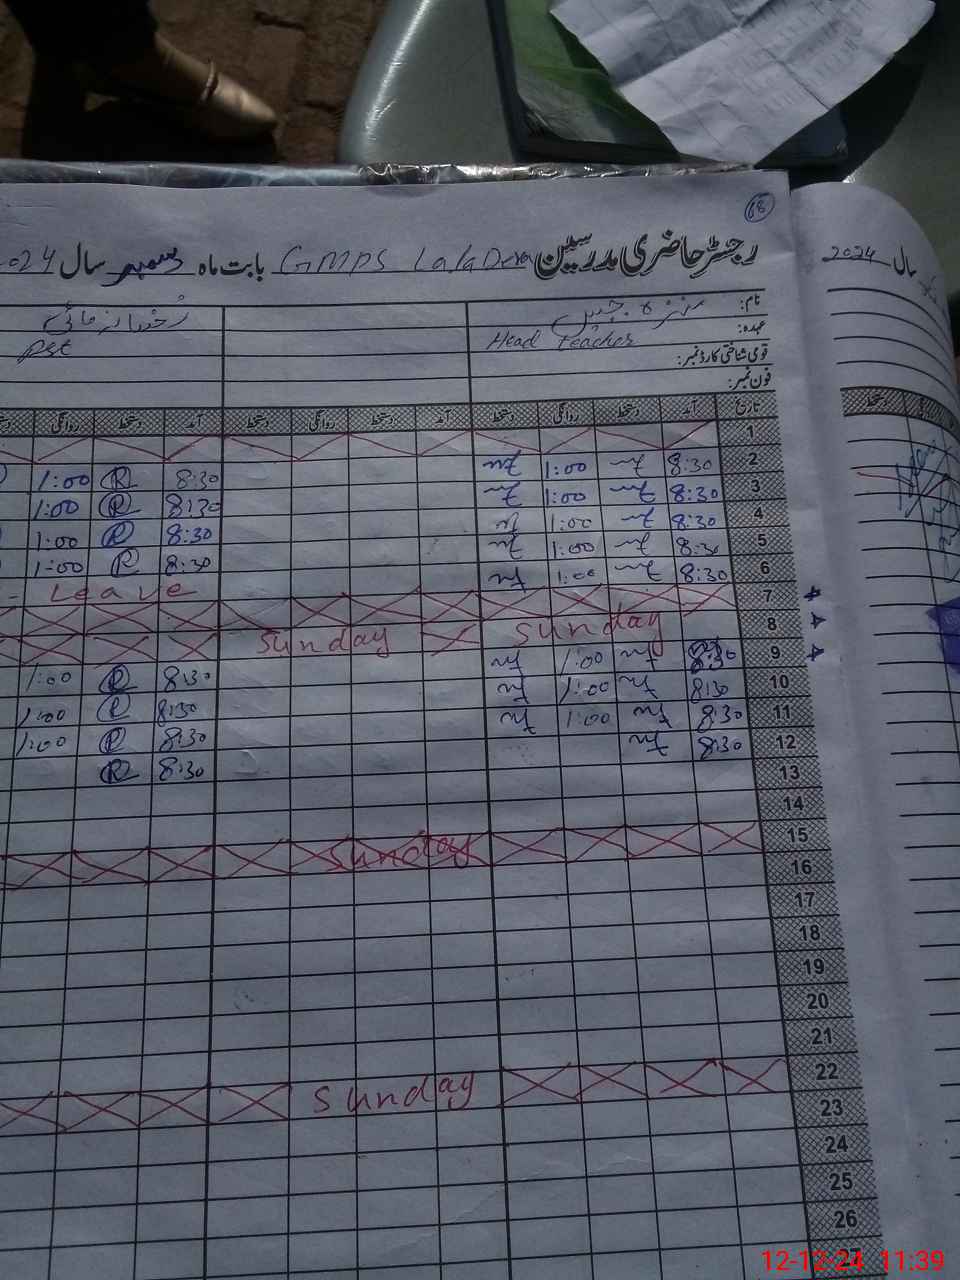 68
رجسٹر حاضری مدرسین GMPS Lala Dera بابت ماہ دسمبر سال 2024
سال 2024
نام:
عہدہ: Head teacher
Pst
قومی شناختی کارڈ نمبر:
فون نمبر:
تاریخ آمد دستخط روانگی دستخط آمد دستخط روانگی دستخط آمد دستخط روانگی
دستخط
1
2 8:30 1:00 8:30 R 1:00
3 8:30 1:00 8:30 R 1:00
4 8:30 1:00 8:30 R 1:00
5 8:30 1:00 8:30 R 1:00
6 8:30 1:00 Leave
7
8 Sunday Sunday
9 8:30 1:00 8:30 R 1:00
10 8:30 1:00 8:30 R 1:00
11 8:30 1:00 8:30 R 1:00
12 8:30 8:30 R
13
14
15 Sunday
16
17
18
19
20
21
22 Sunday
23
24
25
26
27
12-12-24 11:39